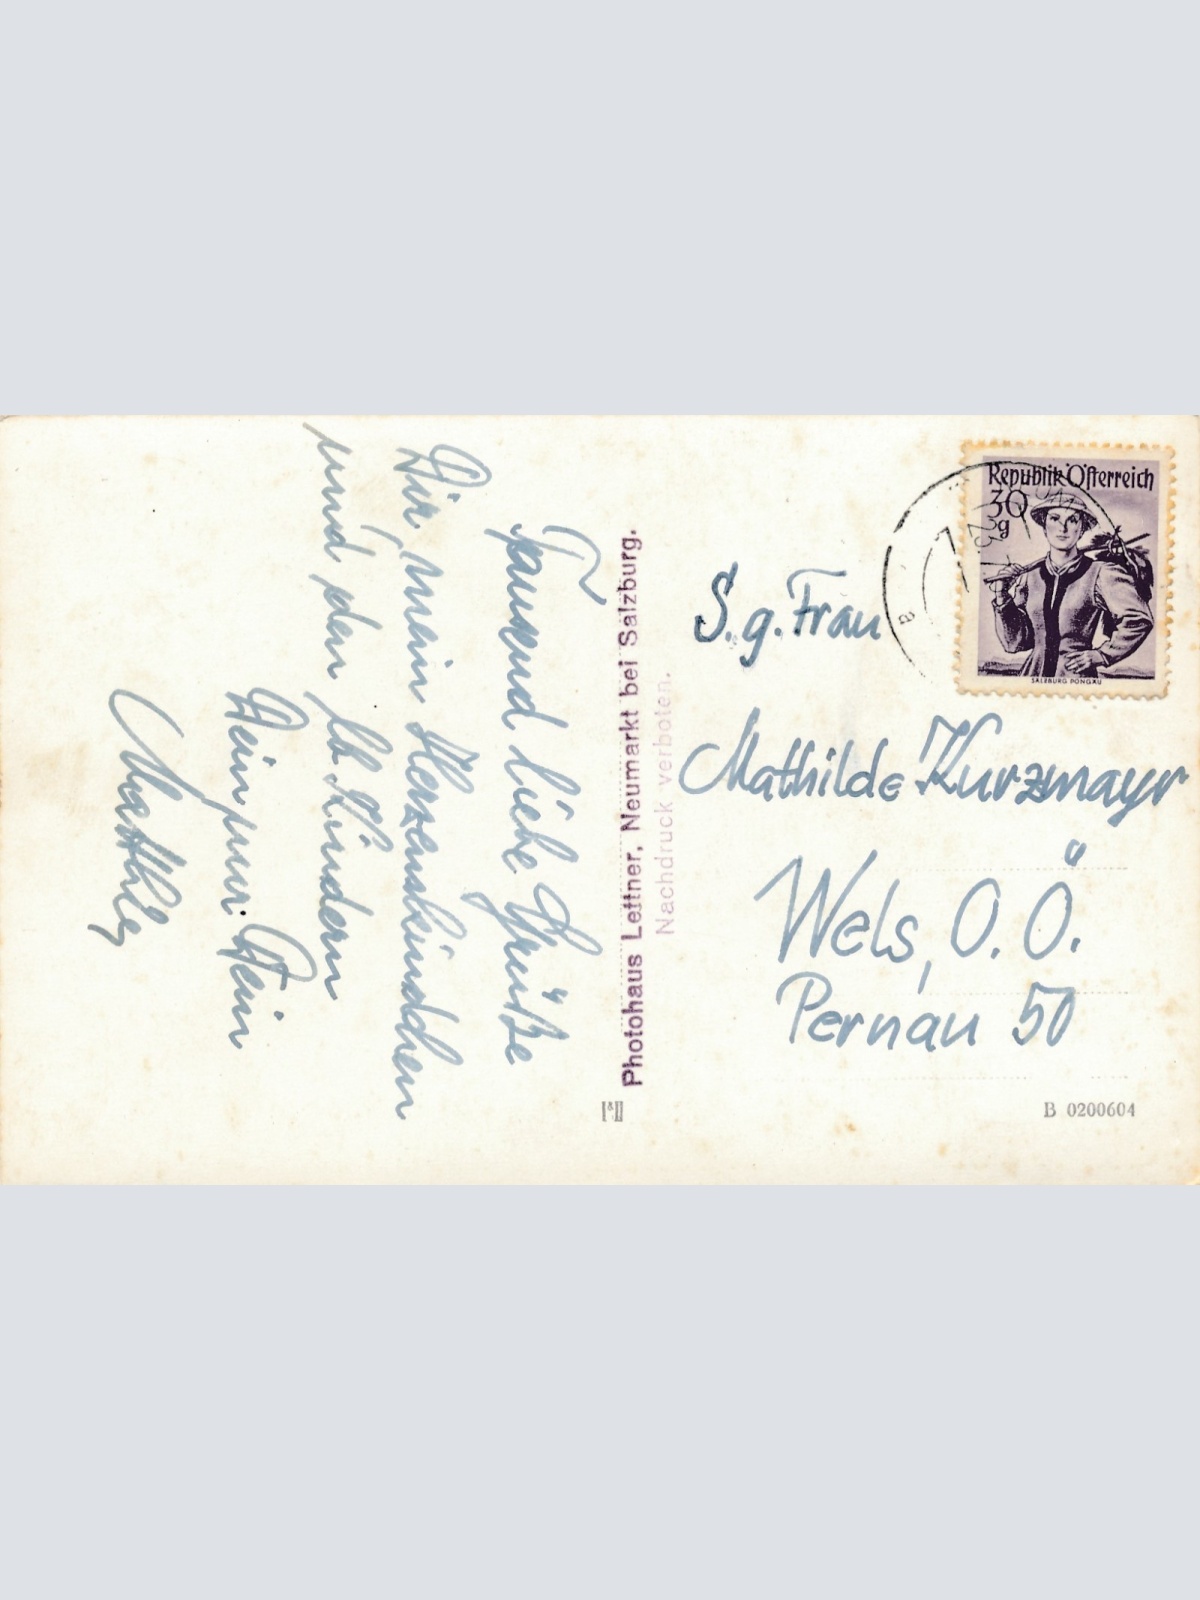 Tausend liebe Grüße
Dir, mein Herzenskindchen
und den lb. Kindern
Dein
Photohaus Lettner, Neumarkt bei Salzburg.
Nachdruck verboten.
Republik Österreich
30
g
SALZBURG PONGAU
7
23.
a
S. g. Frau
Mathilde Kurzmayr
Wels, O.Ö.
Pernau 50
B 0200604